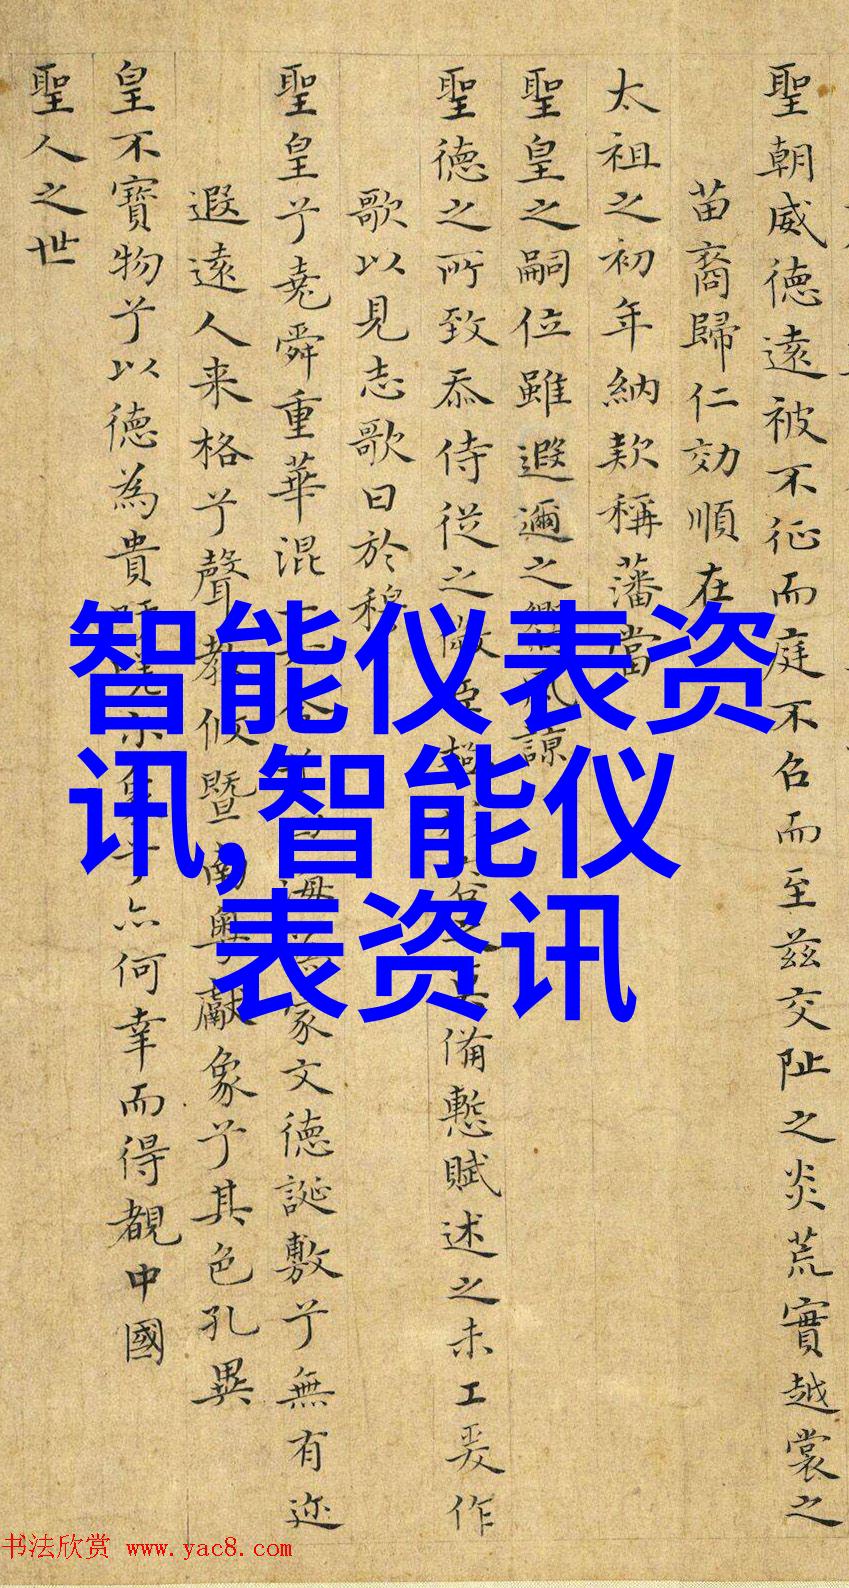 聖朝威德遠被不征而庭不召而至茲交阯之炎荒實越裳之
苗裔歸仁効順在
太祖之初年納款稱藩當
聖皇之嗣位雖遐邇之風諒
聖德之所致忝侍從之備慙賦述之未工爰作
歌以見志歌曰於穆
聖皇兮堯舜重華混一家文德誕敷兮無有迩
遐遠人来格兮聲教攸暨南粤獻象兮其色孔異
皇不寶物兮以德為貴亦何幸而得覩中國
聖人之世
智能仪表资
讯,智能仪
表资讯
书法欣赏 www.yac8.com